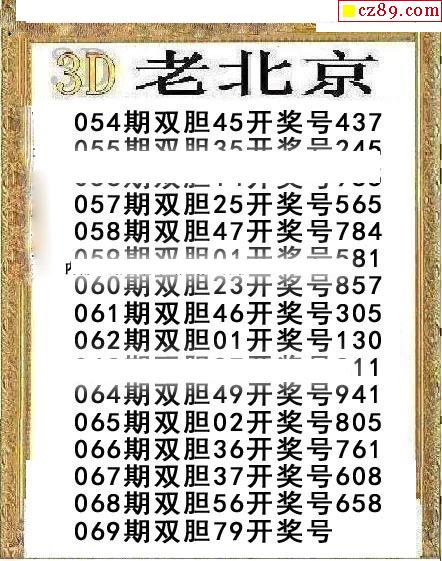 cz89.com
3D 老北京
054期双胆45开奖号437
055期双胆35开奖号245
057期双胆25开奖号565
058期双胆47开奖号784
059期双胆01开奖号581
060期双胆23开奖号857
061期双胆46开奖号305
062期双胆01开奖号130
11
064期双胆49开奖号941
065期双胆02开奖号805
066期双胆36开奖号761
067期双胆37开奖号608
068期双胆56开奖号658
069期双胆79开奖号